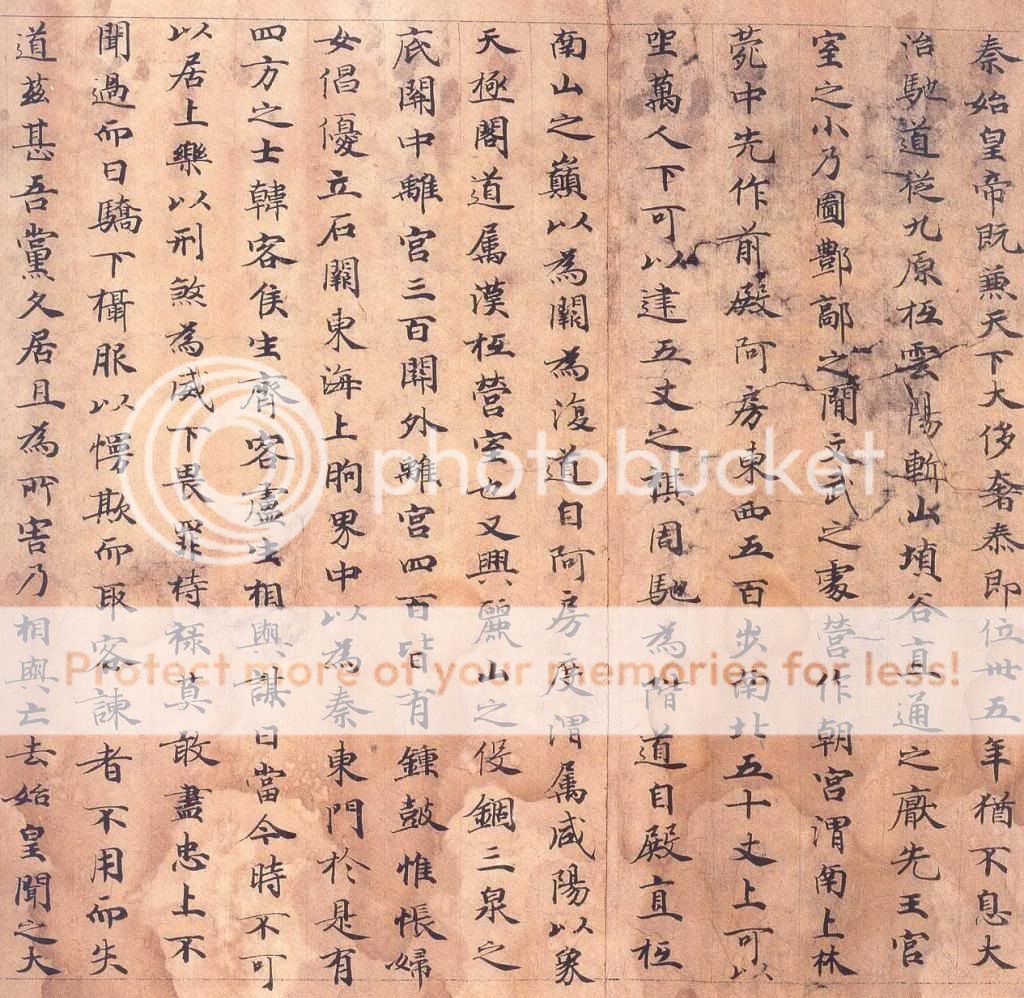 秦始皇帝既兼天下大侈奢泰即位卅五年猶不息大
治馳道從九原枑雲陽塹山塡谷直通之厭先王宮
室之小乃圖酆鄗之閒文武之處營作朝宮渭南上林
菀中先作前殿阿房東西五百步南北五十丈上可以
坐萬人下可以建五丈之旗周馳為階道自殿直枑
南山之巔以為闕為復道自阿房度渭属咸陽以象
天極閣道属漢枑營室也又興麗山之役錮三泉之
底關中離宮三百關外離宮四百皆有鍾鼓惟帳婦
女倡優立石闕東海上朐界中以為秦東門於是有
四方之士韓客侯生齊客盧生相與謀曰當今時不可
以居上樂以刑煞為威下畏罪持祿莫敢盡忠上不
聞過而日驕下懾服以慢欺而取容諫者不用而失
道茲甚吾黨久居且為所害乃相與亡去始皇聞之大
photobucket
Protect more of your memories for less!